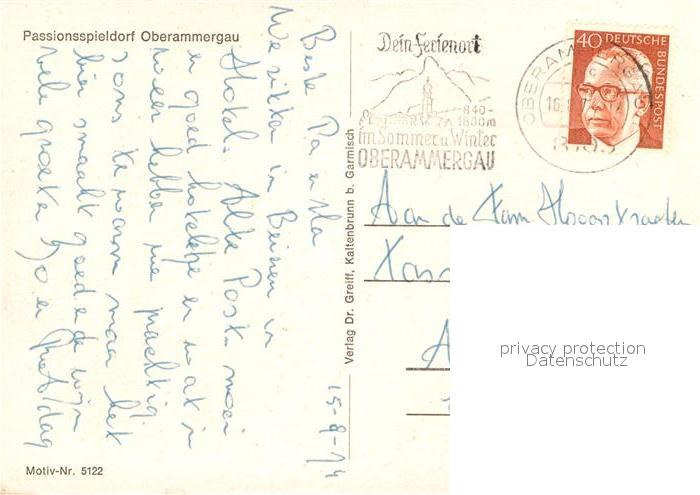 Passionsspieldorf Oberammergau
Beste Pa en Ma
We zitten in Beieren in
Hotel Alte Post. mooi
en goed hotelletje en wat
weer hebben we prachtig
soms te warm maar het
bier smaakt goed en de wijn
vele groeten Jo en
15-8-74
Motiv-Nr. 5122
Verlag Dr. Greiff, Kaltenbrunn b. Garmisch
Dein Ferienort
840-
1800m
im Sommer u. Winter
OBERAMMERGAU
OBERAMMERG
16.8.7
8103
40 DEUTSCHE
BUNDESPOST
Aan de Fam.
privacy protection
Datenschutz